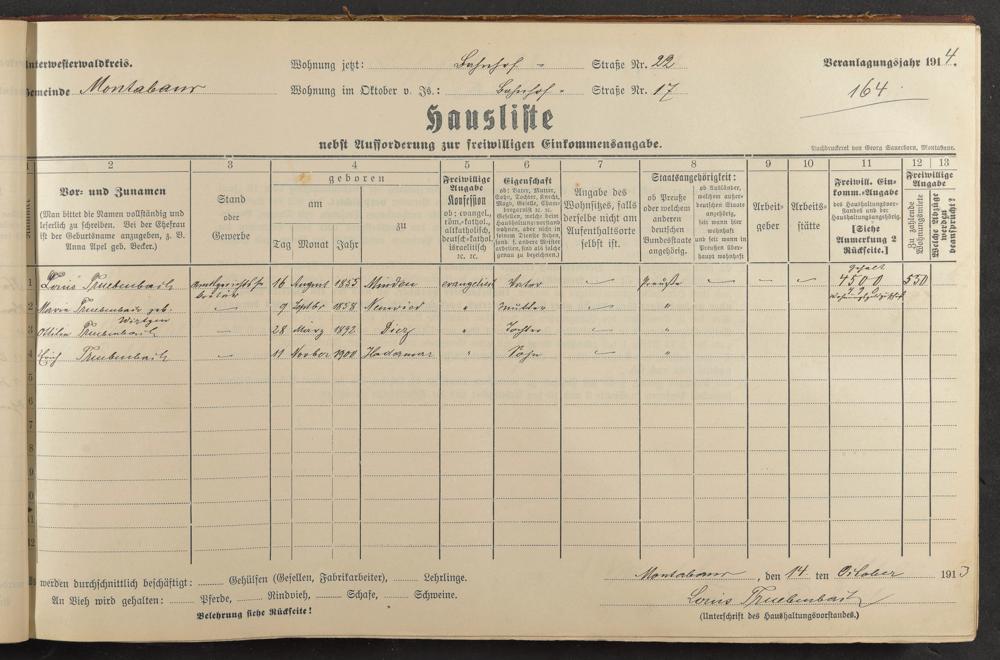 Unterwesterwaldkreis.
Wohnung jetzt: Bahnhof - Straße Nr. 22
Veranlagungsjahr 1914.
Gemeinde Montabaur
Wohnung im Oktober v. Js.: Bahnhof - Straße Nr. 17
164
Hausliste
nebst Aufforderung zur freiwilligen Einkommensangabe.
Buchdruckerei von Georg Sauerborn, Montabaur.
1 2 3 4 5 6 7 8 9 10 11 12 13
Vor- und Zunamen
(Man bittet die Namen vollständig und
leserlich zu schreiben. Bei der Ehefrau
ist der Geburtsname anzugeben, z. B.
Anna Apel geb. Becker.)
Stand
oder
Gewerbe
geboren
am
zu
Tag Monat Jahr
Freiwillige
Angabe
Konfession
ob: evangel.,
röm.-kathol.,
altkatholisch,
deutsch-kathol.
israelitisch
ec. ec.
Eigenschaft
ob: Vater, Mutter,
Sohn, Tochter, Knecht,
Magd, Geselle,
Gesellen, welche beim
Haushaltungsvorstand
wohnen, aber nicht in
seinem Dienste stehen,
sind s. andere Meister
arbeiten, sind als solche
genau zu bezeichnen.)
Angabe des
Wohnsitzes, falls
derselbe nicht am
Aufenthaltsorte
selbst ist.
Staatsangehörigkeit:
ob Preuße
oder welchem
anderen
deutschen
Bundesstaate
angehörig.
ob Ausländer,
welchem außer-
deutschen Staate
angehörig,
seit wann hier
wohnhaft
und seit wann in
Preußen über-
haupt wohnhaft
Arbeit-
geber
Arbeits-
stätte
Freiwill. Ein-
komm.-Angabe
des Haushaltungsvor-
standes und der
Haushaltungsangehörig.
[Siehe
Anmerkung 2
Rückseite.]
Freiwillige
Angabe
Zu zahlende
Wohnungsmiete
Welche Abzüge
werden
beansprucht?
1 Louis Truebenbach Amtsgerichts-Se- 16 August 1855 Minden evangelisch Vater — Preuße — — — Gehalt 4500 550
kretär
2 Maria Truebenbach geb. — 9 Septbr 1858 Neuwied " Mutter — "
Wirtgen
3 Ottilie Truebenbach — 28 März 1892 Diez " Tochter — "
4 Erich Truebenbach — 11 Novbr 1900 Hadamar " Sohn — "
5
6
7
8
9
10
11
12
Es werden durchschnittlich beschäftigt: Gehülfen (Gesellen, Fabrikarbeiter), Lehrlinge.
An Vieh wird gehalten: Pferde, Rindvieh, Schafe, Schweine.
Belehrung siehe Rückseite!
Montabaur, den 14 ten October 1913
Louis Truebenbach
(Unterschrift des Haushaltungsvorstandes.)